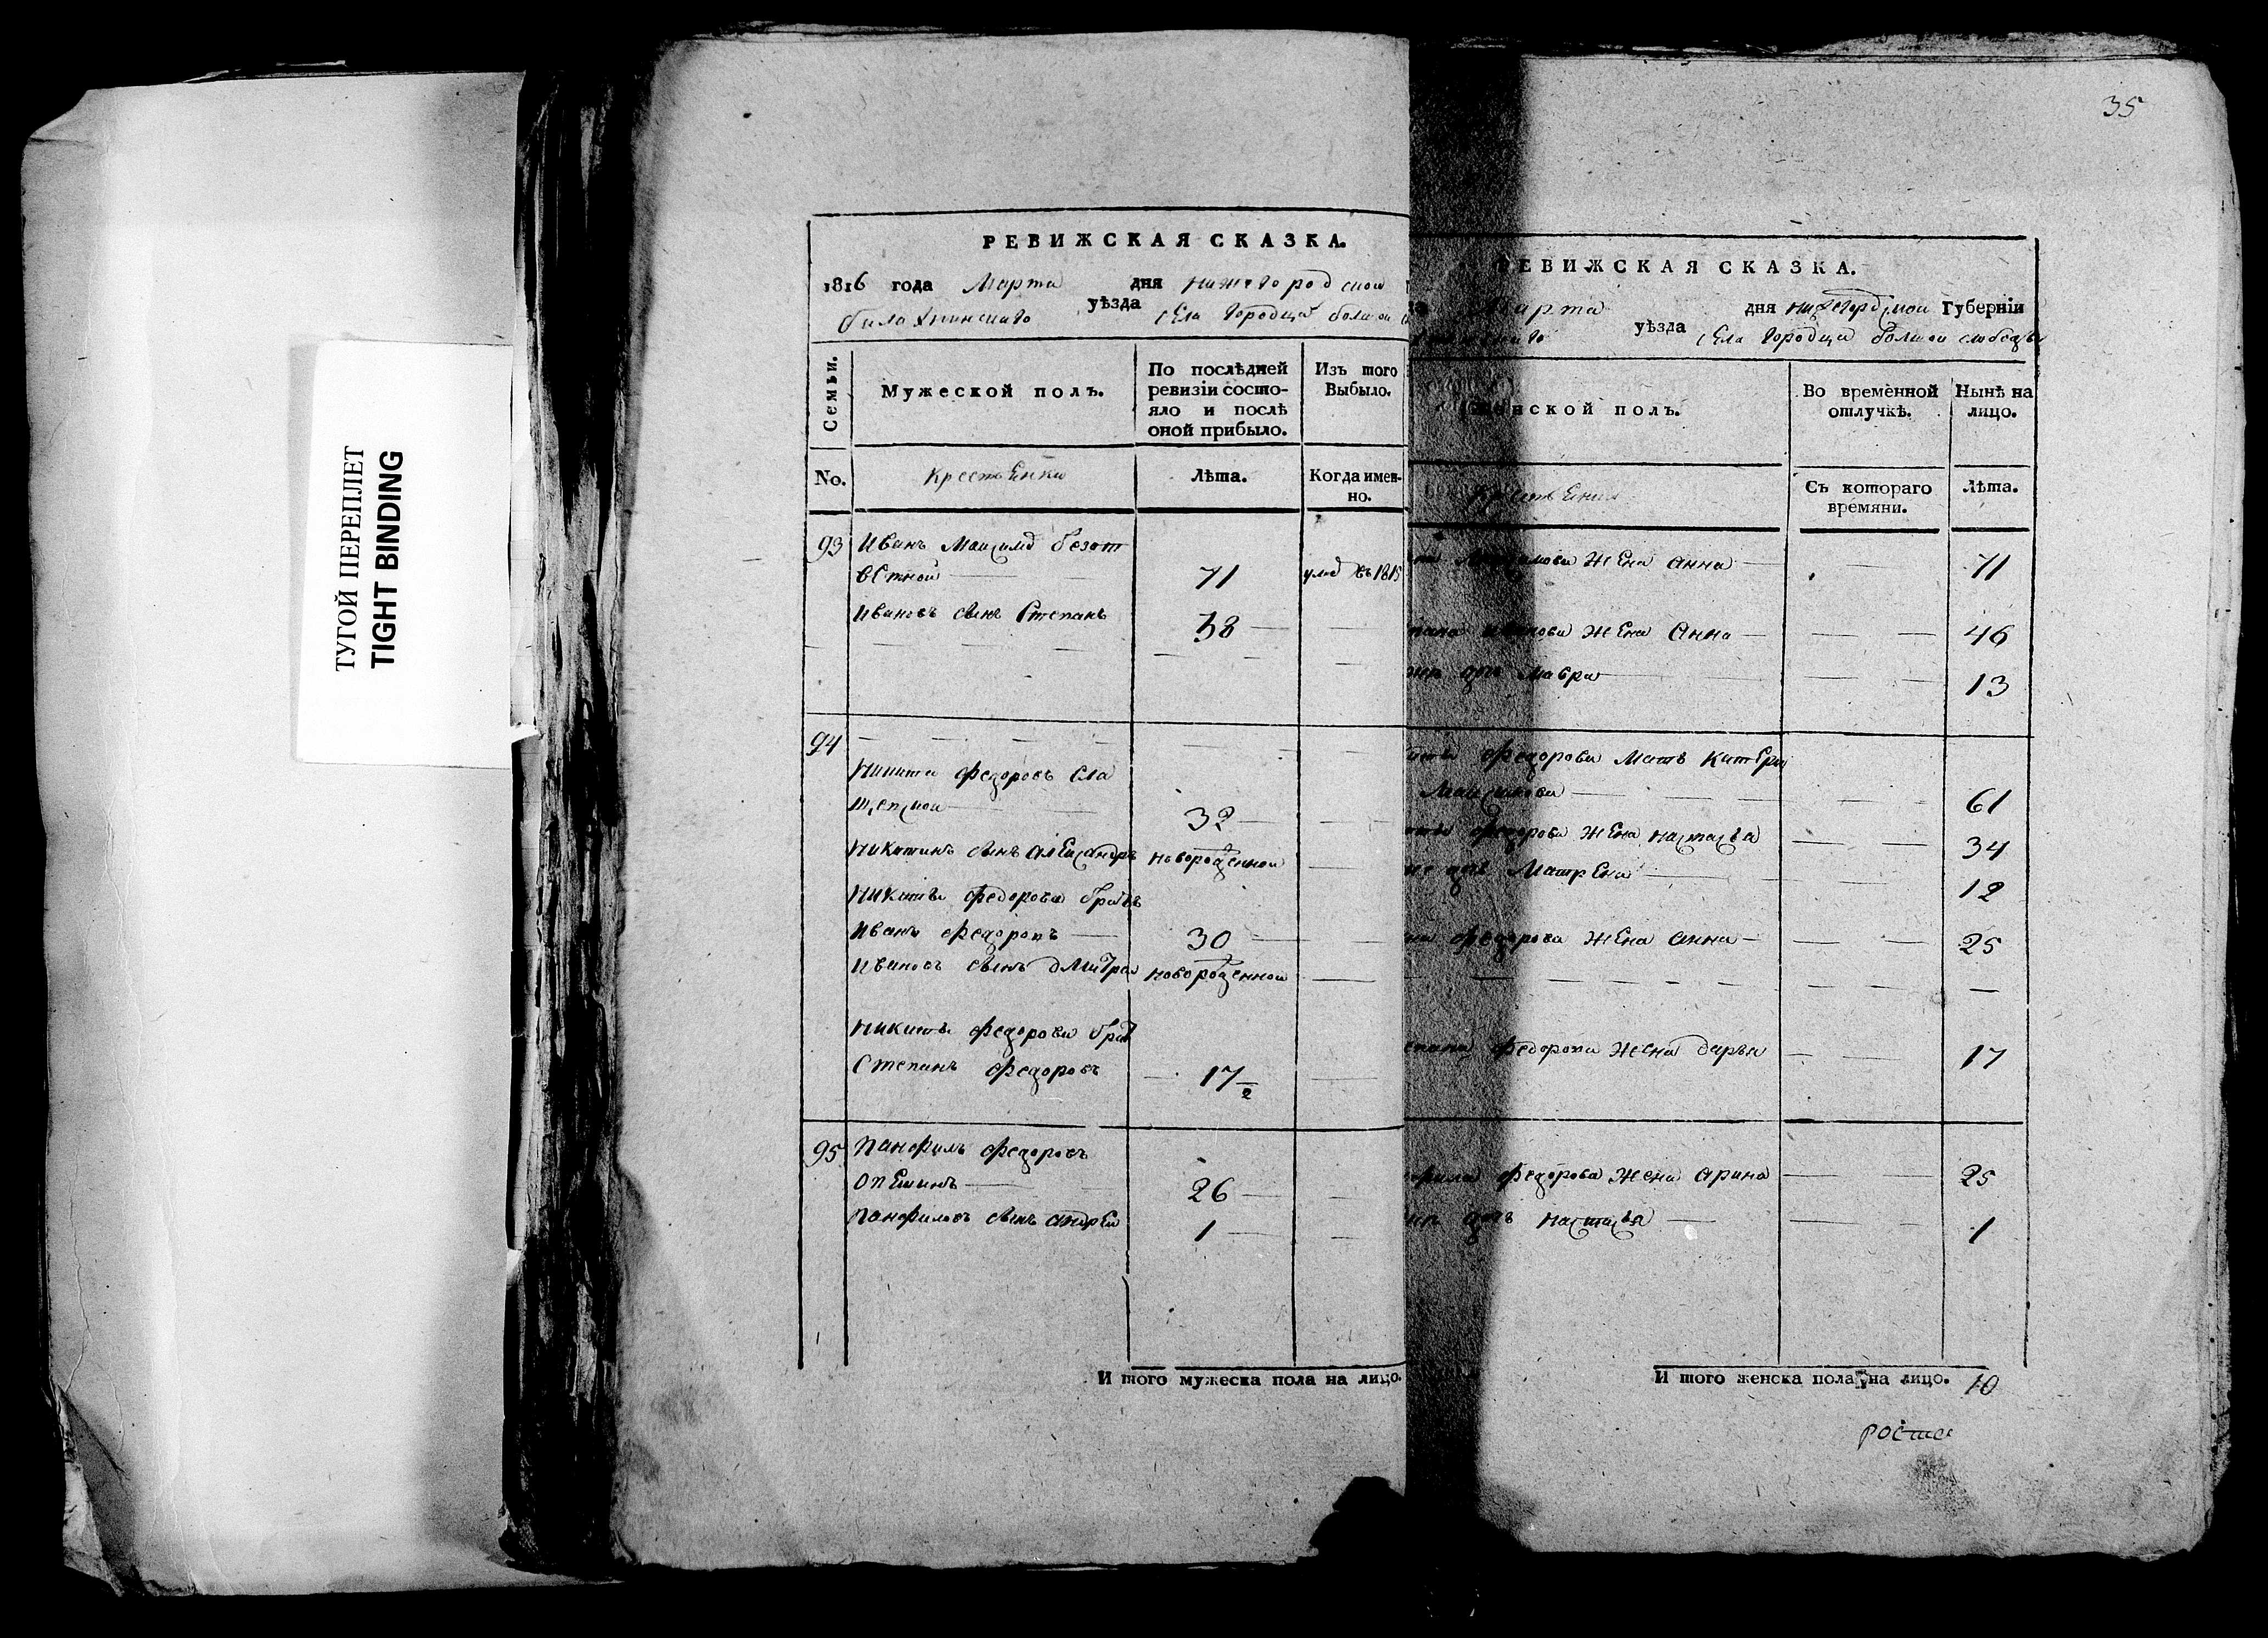 35
ТУГОЙ ПЕРЕПЛЕТ
TIGHT BINDING
РЕВИЖСКАЯ СКАЗКА.
1816 года Марта дня нижегородской
балахнинского уѣзда села городца болшой
Семьи.
Мужеской полъ.
По послѣдней ревизіи состояло и послѣ оной прибыло.
Изъ того Выбыло.
No.
крестьЕнки
Лѣта.
Когда именно.
93 Иванъ Максимо безот
вЕтной 71 умро въ 1815
Ивановъ сынъ Степанъ 38
94
Никита Федоровъ сла
щепской 32
Никитинъ сынъ алЕксандръ новорожденной
Никиты Федорова братья
Иванъ Федоровъ 30
Ивановъ сынъ дмитреи новорожденной
Никиты Федорова брат
Степанъ Федоровъ 17
95 Панфилъ Федоровъ
опЕшинъ 26
Панфиловъ сынъ андрЕи 1
И того мужеска пола на лицо.
РЕВИЖСКАЯ СКАЗКА.
Марта дня нижегордской Губерніи
уѣзда села городца болшой слободы
Женской полъ.
Во времѐнной отлучкѣ.
Нынѣ на лицо.
Съ котораго времяни.
Лѣта.
Максимова жЕна анна 71
Иванова жЕна анна 46
дочь Мавра 13
Федорова Мать катЕри
Максимова 61
Федорова жЕна настасья 34
дочь МатрЕна 12
Федорова жЕна анна 25
Федорова жена дарья 17
Федорова жена арина 25
дочь настасья 1
И того женска пола на лицо. 10